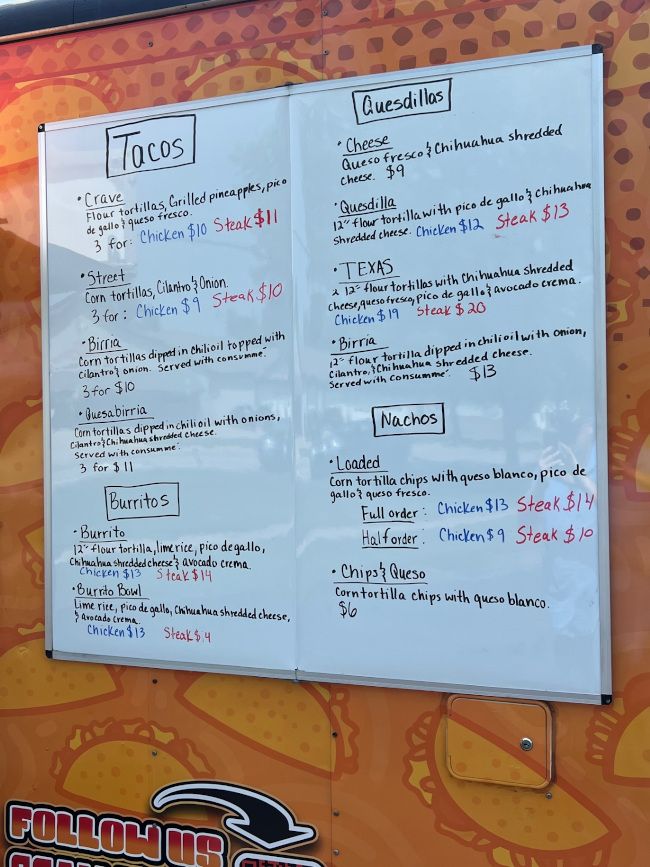 Tacos
• Crave
Flour tortillas, Grilled pineapples, pico
de gallo & queso fresco.
3 for: Chicken $10 Steak $11
• Street
Corn tortillas, Cilantro & Onion.
3 for: Chicken $9 Steak $10
• Birria
Corn tortillas dipped in Chili oil topped with
cilantro & onion. Served with consummé.
3 for $10
• Quesabirria
Corn tortillas dipped in chili oil with onions,
Cilantro & Chihuahua shredded cheese.
Served with consummé.
3 for $11
Burritos
• Burrito
12" flour tortilla, lime rice, pico de gallo,
Chihuahua shredded cheese & avocado crema.
Chicken $13 Steak $14
• Burrito Bowl
Lime rice, pico de gallo, Chihuahua shredded cheese,
& avocado crema.
Chicken $13 Steak $14
Quesdillas
• Cheese
Queso fresco & Chihuahua shredded
cheese. $9
• Quesdilla
12" flour tortilla with pico de gallo & Chihuahua
shredded cheese. Chicken $12 Steak $13
• TEXAS
2 12" flour tortillas with Chihuahua shredded
cheese, queso fresco, pico de gallo & avocado crema.
Chicken $19 Steak $20
• Birria
12" flour tortilla dipped in chili oil with onion,
Cilantro, & Chihuahua shredded cheese.
Served with Consummé. $13
Nachos
• Loaded
Corn tortilla chips with queso blanco, pico de
gallo & queso fresco.
Full order: Chicken $13 Steak $14
Half order: Chicken $9 Steak $10
• Chips & Queso
Corn tortilla chips with queso blanco.
$6
FOLLOW US